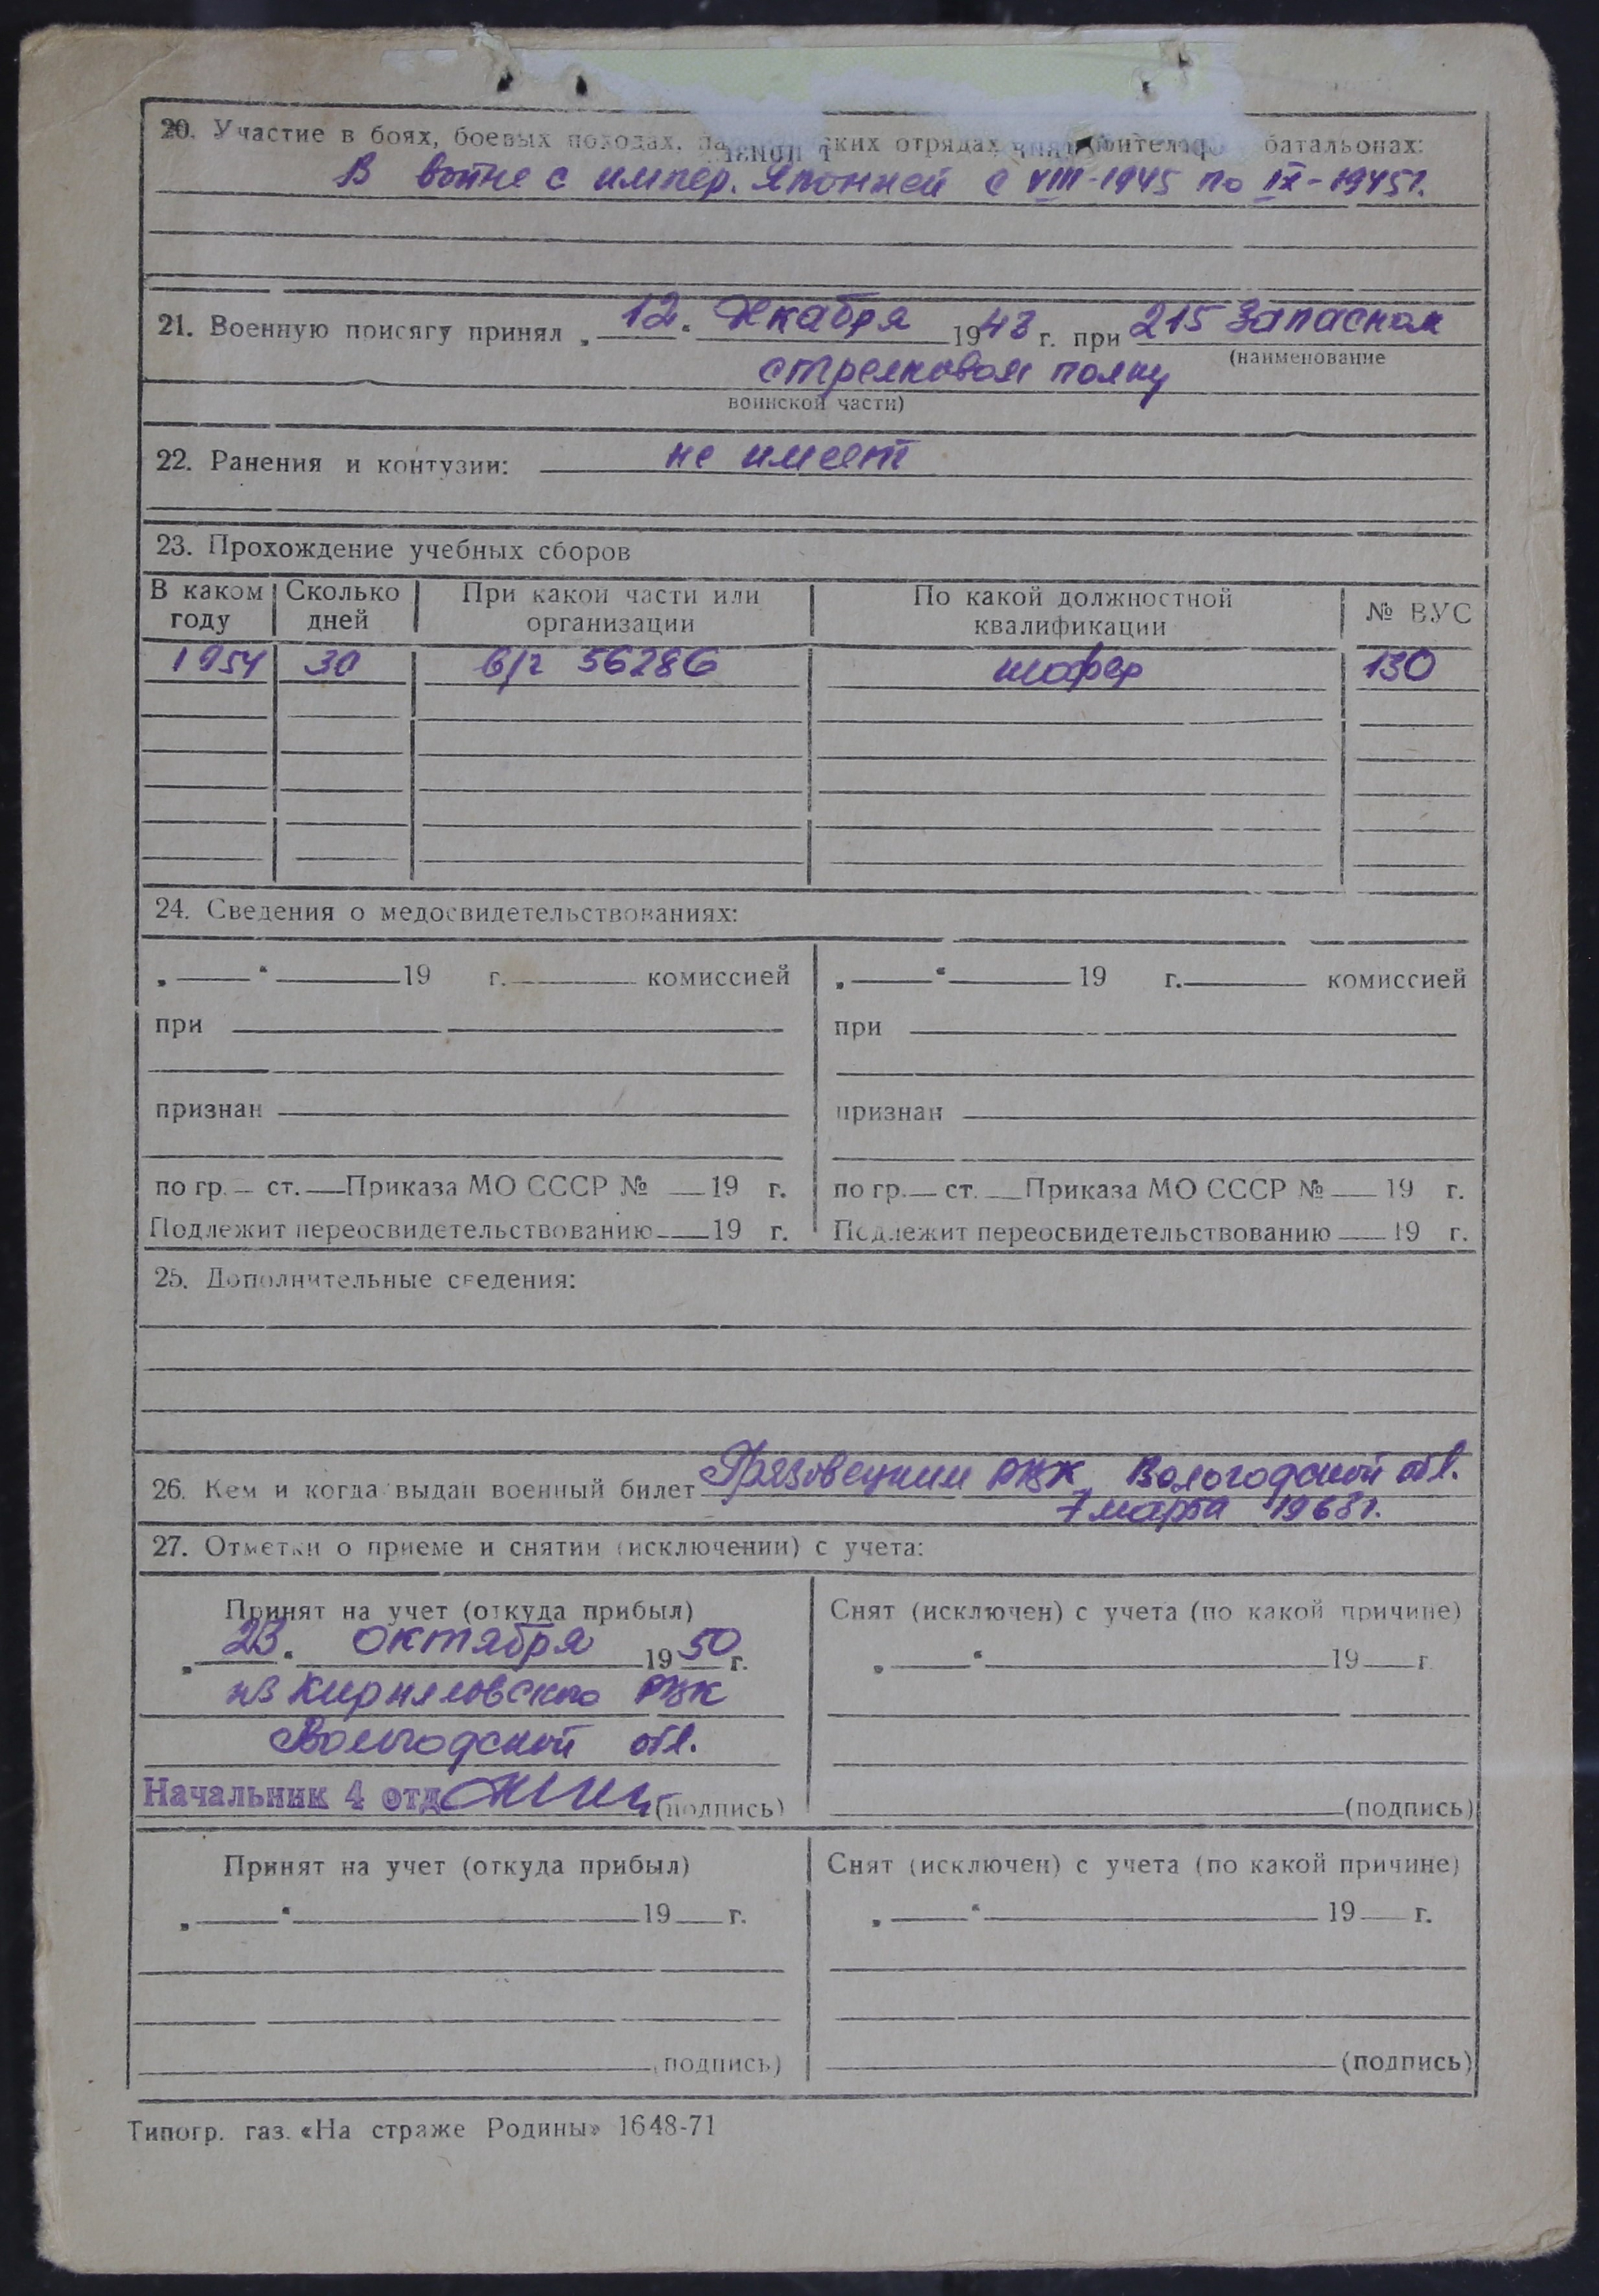 20. Участие в боях, боевых походах, ских отрядах батальонах:
В войне с импер. Японией с VIII-1945 по IX-1945г.
21. Военную присягу принял „12“ декабря 1943 г. при 215 запасном
(наименование
стрелковом полку
воинской части)
22. Ранения и контузии: не имеет
23. Прохождение учебных сборов
В каком году Сколько дней При какой части или организации По какой должностной квалификации № ВУС
1954 30 в/ч 56286 шофер 130
24. Сведения о медосвидетельствованиях:
„ “ 19 г. комиссией „ “ 19 г. комиссией
при при
признан признан
по гр. ст. Приказа МО СССР № 19 г. по гр. ст. Приказа МО СССР № 19 г.
Подлежит переосвидетельствованию 19 г. Подлежит переосвидетельствованию 19 г.
25. Дополнительные сведения:
26. Кем и когда выдан военный билет Грязовецким РВК Вологодской обл.
7 марта 1968г.
27. Отметки о приеме и снятии (исключении) с учета:
Принят на учет (откуда прибыл) Снят (исключен) с учета (по какой причине)
„23“ октября 1950 г. „ “ 19 г.
из Кирилловского РВК
Вологодской обл.
Начальник 4 отд (подпись) (подпись)
Принят на учет (откуда прибыл) Снят (исключен) с учета (по какой причине)
„ “ 19 г. „ “ 19 г.
(подпись) (подпись)
Типогр. газ. «На страже Родины» 1648-71